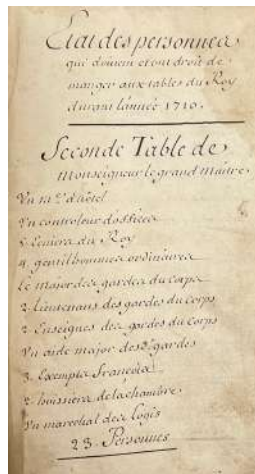 Etat des personnes
qui doivent et ont droit de
manger aux tables du Roy
durant l'année 1710.
Seconde Table de
Monseigneur le grand Maitre
Un M.e d'hôtel
Un controleur d'office
5 Ecuiers du Roy
4 gentilhommes ordinaires
Le major des gardes du corps
2 Lieutenans des gardes du Corps
2 Enseignes des gardes du Corps
Un aide major des gardes
3 Exempts françois
2 huissiers de la chambre
Un marechal des Logis
23 Personnes